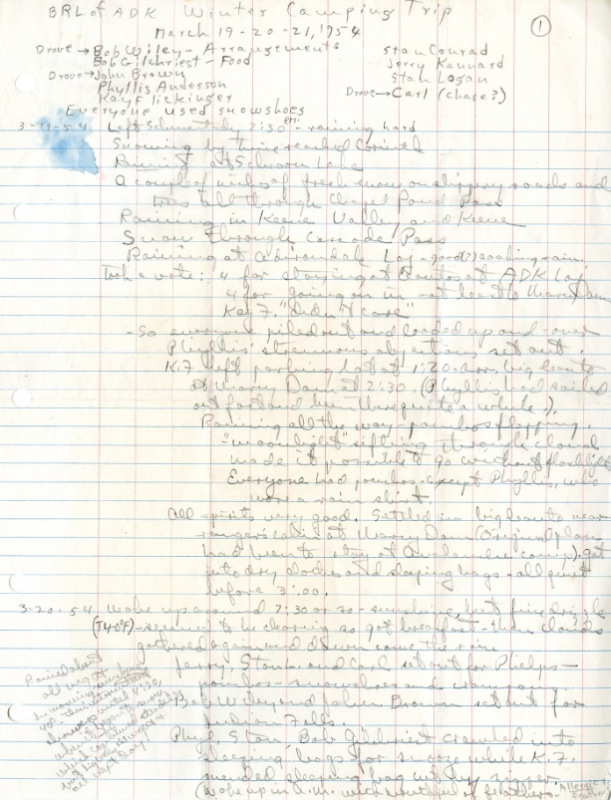 BRL of ADK Winter Camping Trip
①
March 19-20-21, 1954
Drove → Bob Wiley - Arrangements
Stan Conrad
Bob Gilchriest - Food
Jerry Kannard
Drove → John Brown
Stan Logan
Phyllis Anderson
Drove → Carl (chase?)
Kay Flickinger
Everyone used snowshoes
3-19-54 Left Schenectady 7:30 pm - raining hard
Snowing by time reached Corinth
Raining at Schroon Lake
A couple of inches of fresh snow on slippery roads and
trees all through Chapel Pond Pass
Raining in Keene Valley and Keene
Snow through Cascade Pass
Raining at Adirondak Loj - good soaking rain.
Took a vote: 4 for staying at leantos at ADK Loj
4 for going on in - at least to Marcy Dam
Kay F. "Didn't care"
- So everyone piled out and loaded up and over
Phyllis' strenuous objections set out.
K.F. left parking lot at 1:20 a.m. big leanto
at Marcy Dam at 2:30. (Phyllis had sailed
on forward been there quite a while).
Raining all the way - ponchos flapping.
"moonlight" sifting through clouds
made it possible to go without flashlight
Everyone had ponchos except Phyllis, who
wore a rain shirt.
All spirits very good. Settled in big leanto near
ranger's cabin at Marcy Dam (Original plan
had been to stay at Avalanche camp). got
into dry clothes and sleeping bags - all quiet
before 3:00.
3-20-54 Woke up around 7:30 or so - sunshine, but fine drizzle
(T40°F) - seemed to be clearing so got breakfast - then clouds
gathered again and down came the rain
Jerry, Stan L. and Carl set out for Phelps -
ponchos - snowshoes and crampons.
Bob Wiley and John Brown set out for
Indian Falls.
Phyl, Stan, Bob Gilchriest crawled into
sleeping bags for snooze while K.F.
mended sleeping bag
(Woke up in A.M. with mouthful of feathers.
Rained about
all way
in morning
all day